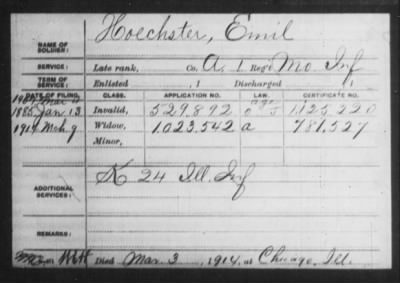 Hoechster, Emil
NAME OF SOLDIER:
SERVICE: Late rank, Co. A. 1 Reg't Mo Inf
TERM OF SERVICE: Enlisted , 1 Discharged , 1
DATE OF FILING. CLASS. APPLICATION NO. LAW. CERTIFICATE NO.
1885 Jan 13 Invalid, 529.892 1,125,220
1914 Mch 9 Widow, 1.023.542 a 781,527
Minor,
ADDITIONAL SERVICES: K 24 Ill. Inf
REMARKS:
Died Mar. 3, 1914, at Chicago, Ill.